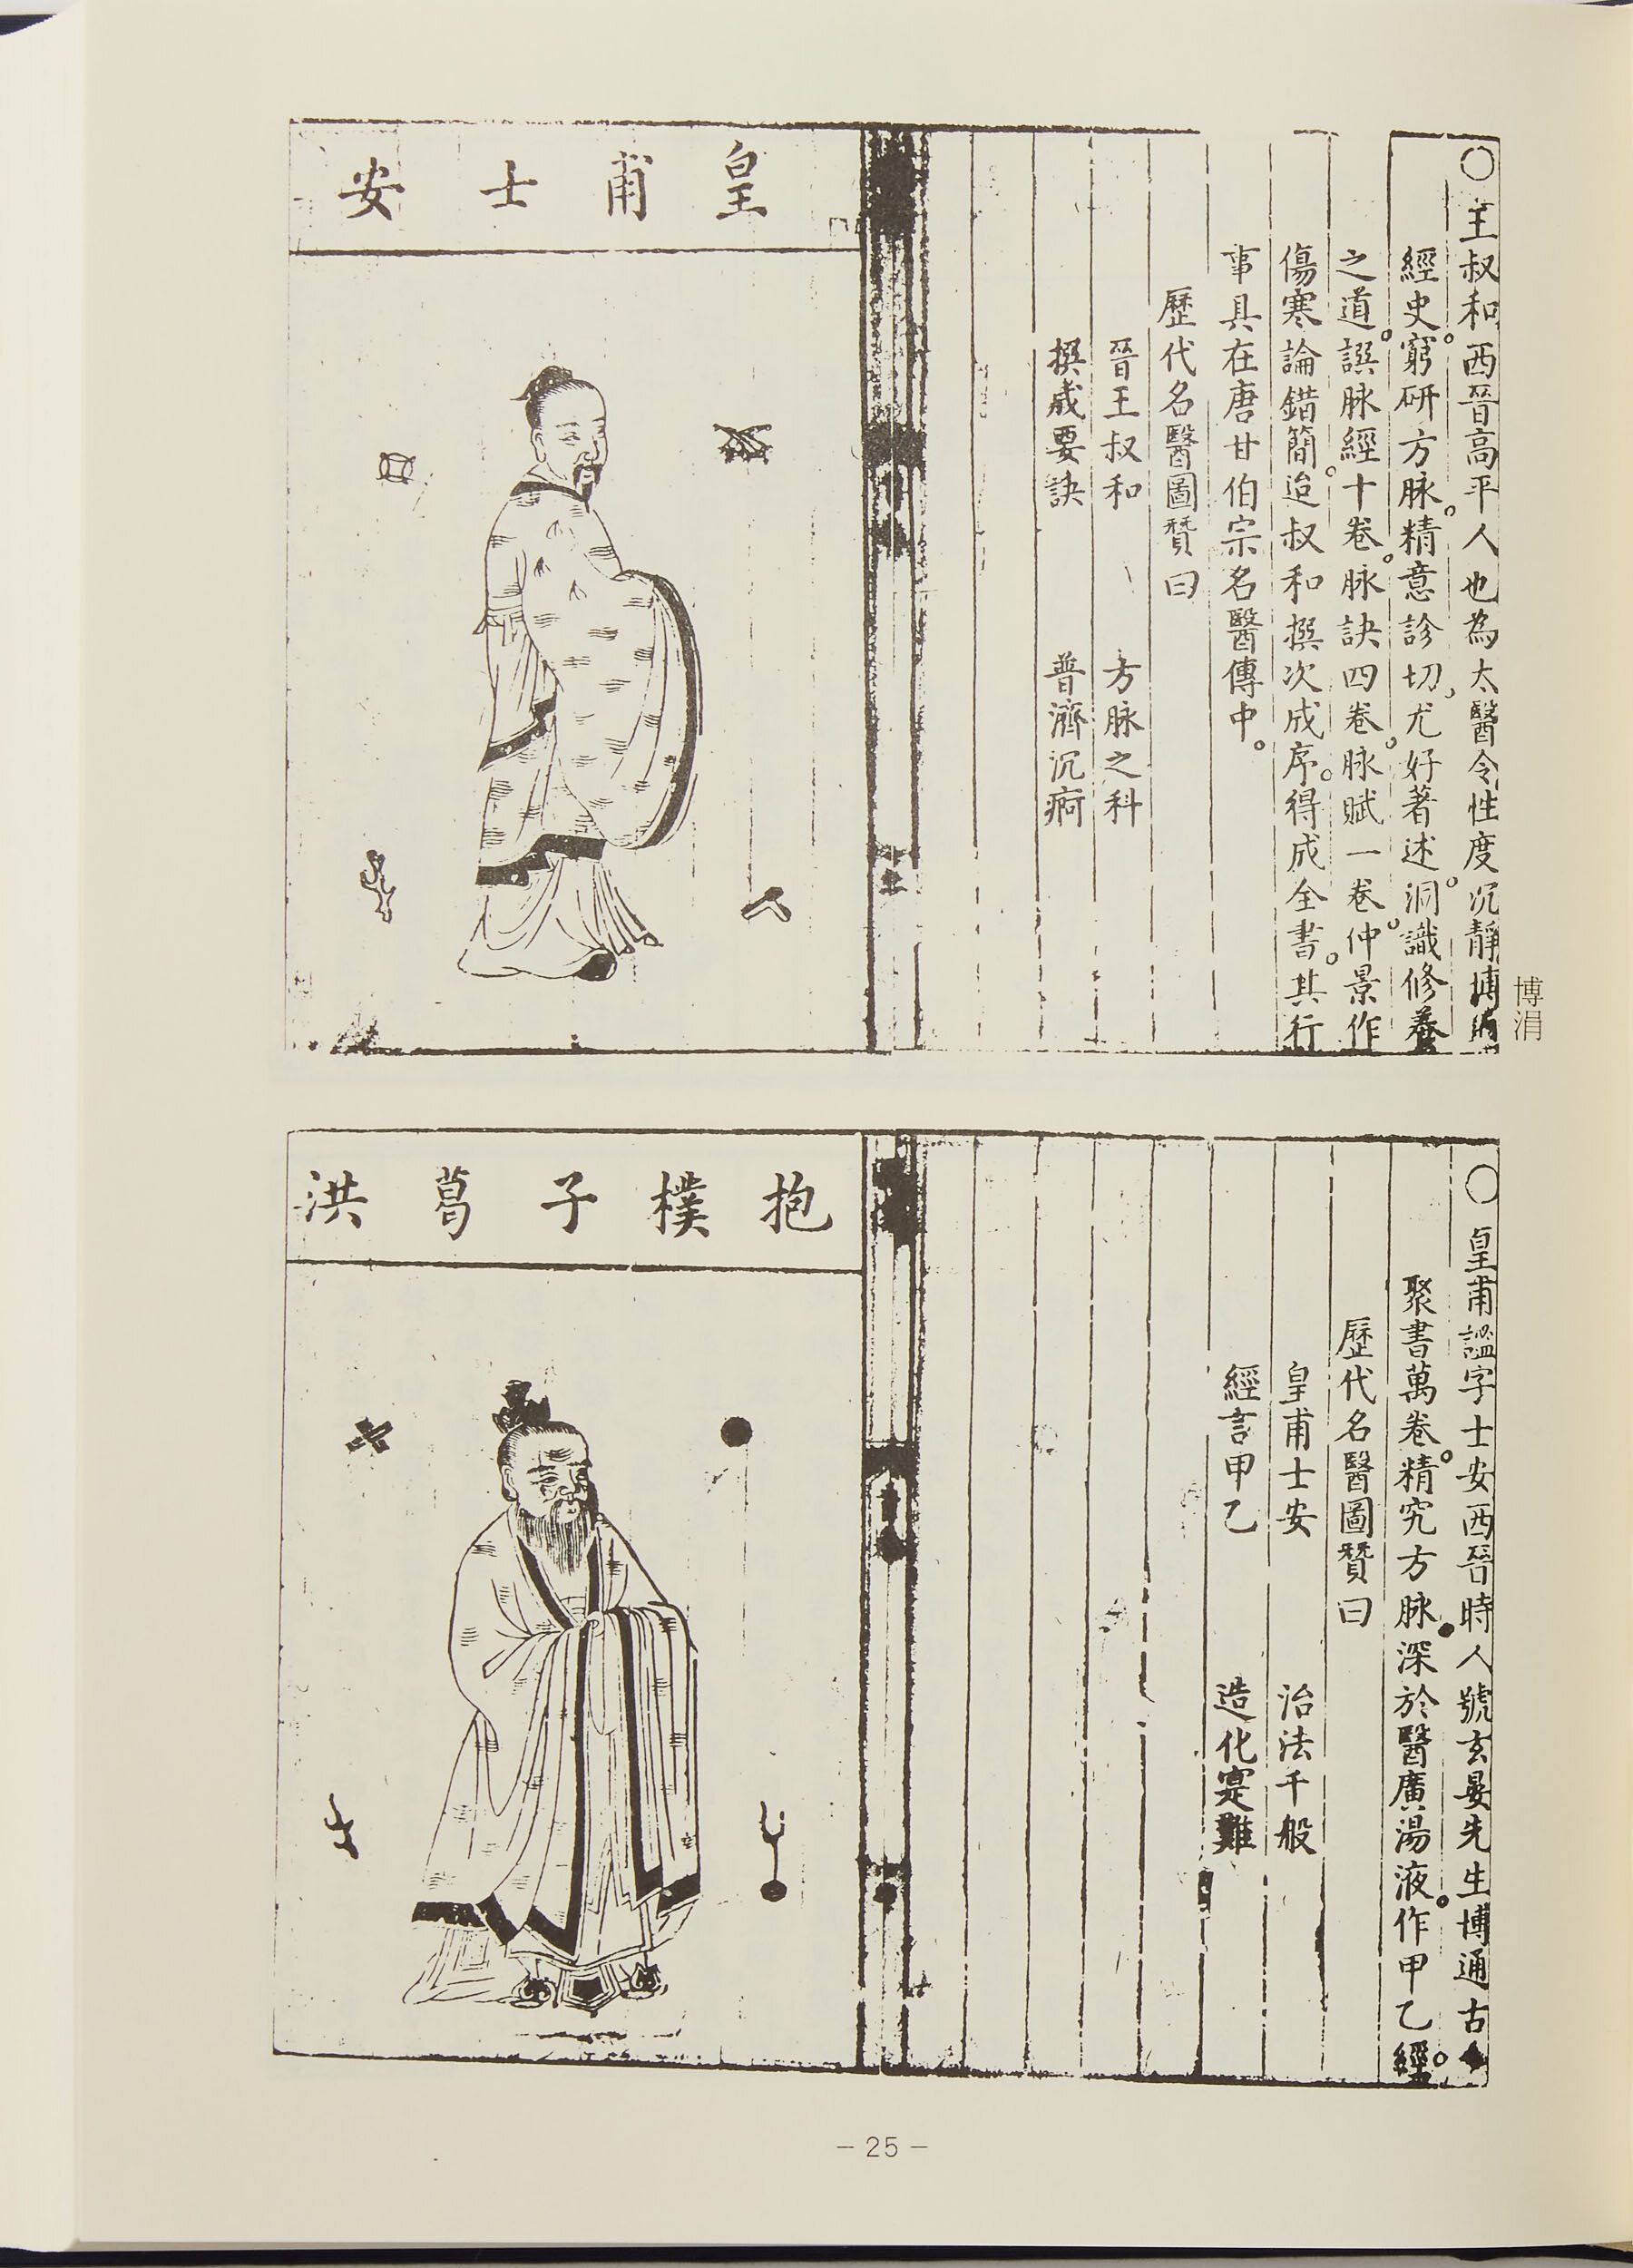 ○王叔和西晉高平人也為太醫令性度沉靜博
經史。窮研方脉。精意診切。尤好著述。洞識修養
之道。譔脉經十卷。脉訣四卷。脉賦一卷。仲景作
傷寒論錯簡。迨叔和撰次成序。得成全書。其行
事具在唐甘伯宗名醫傳中。
歷代名醫圖贊曰
晉王叔和 方脉之科
撰成要訣 普濟沉痾
博涓
皇甫士安
○皇甫謐字士安西晉時人號玄晏先生博通古
聚書萬卷。精究方脉。深於醫廣湯液。作甲乙經。
歷代名醫圖贊曰
皇甫士安 治法千般
經言甲乙 造化寔難
抱樸子葛洪
－25－